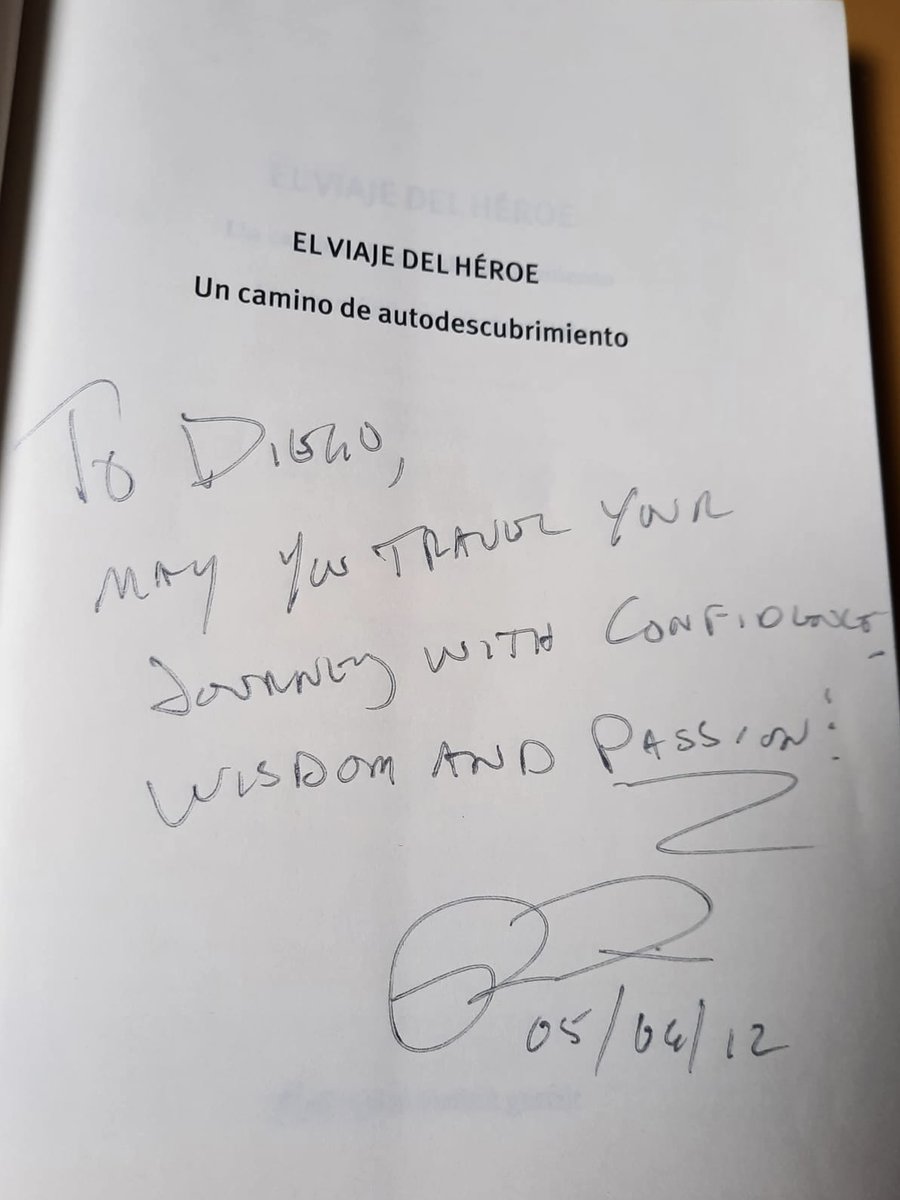 EL VIAJE DEL HÉROE
Un camino de autodescubrimiento
To DIEGO,
MAY YOU TRAVEL YOUR
JOURNEY WITH CONFIDENCE,
WISDOM AND PASSION!
05/04/12